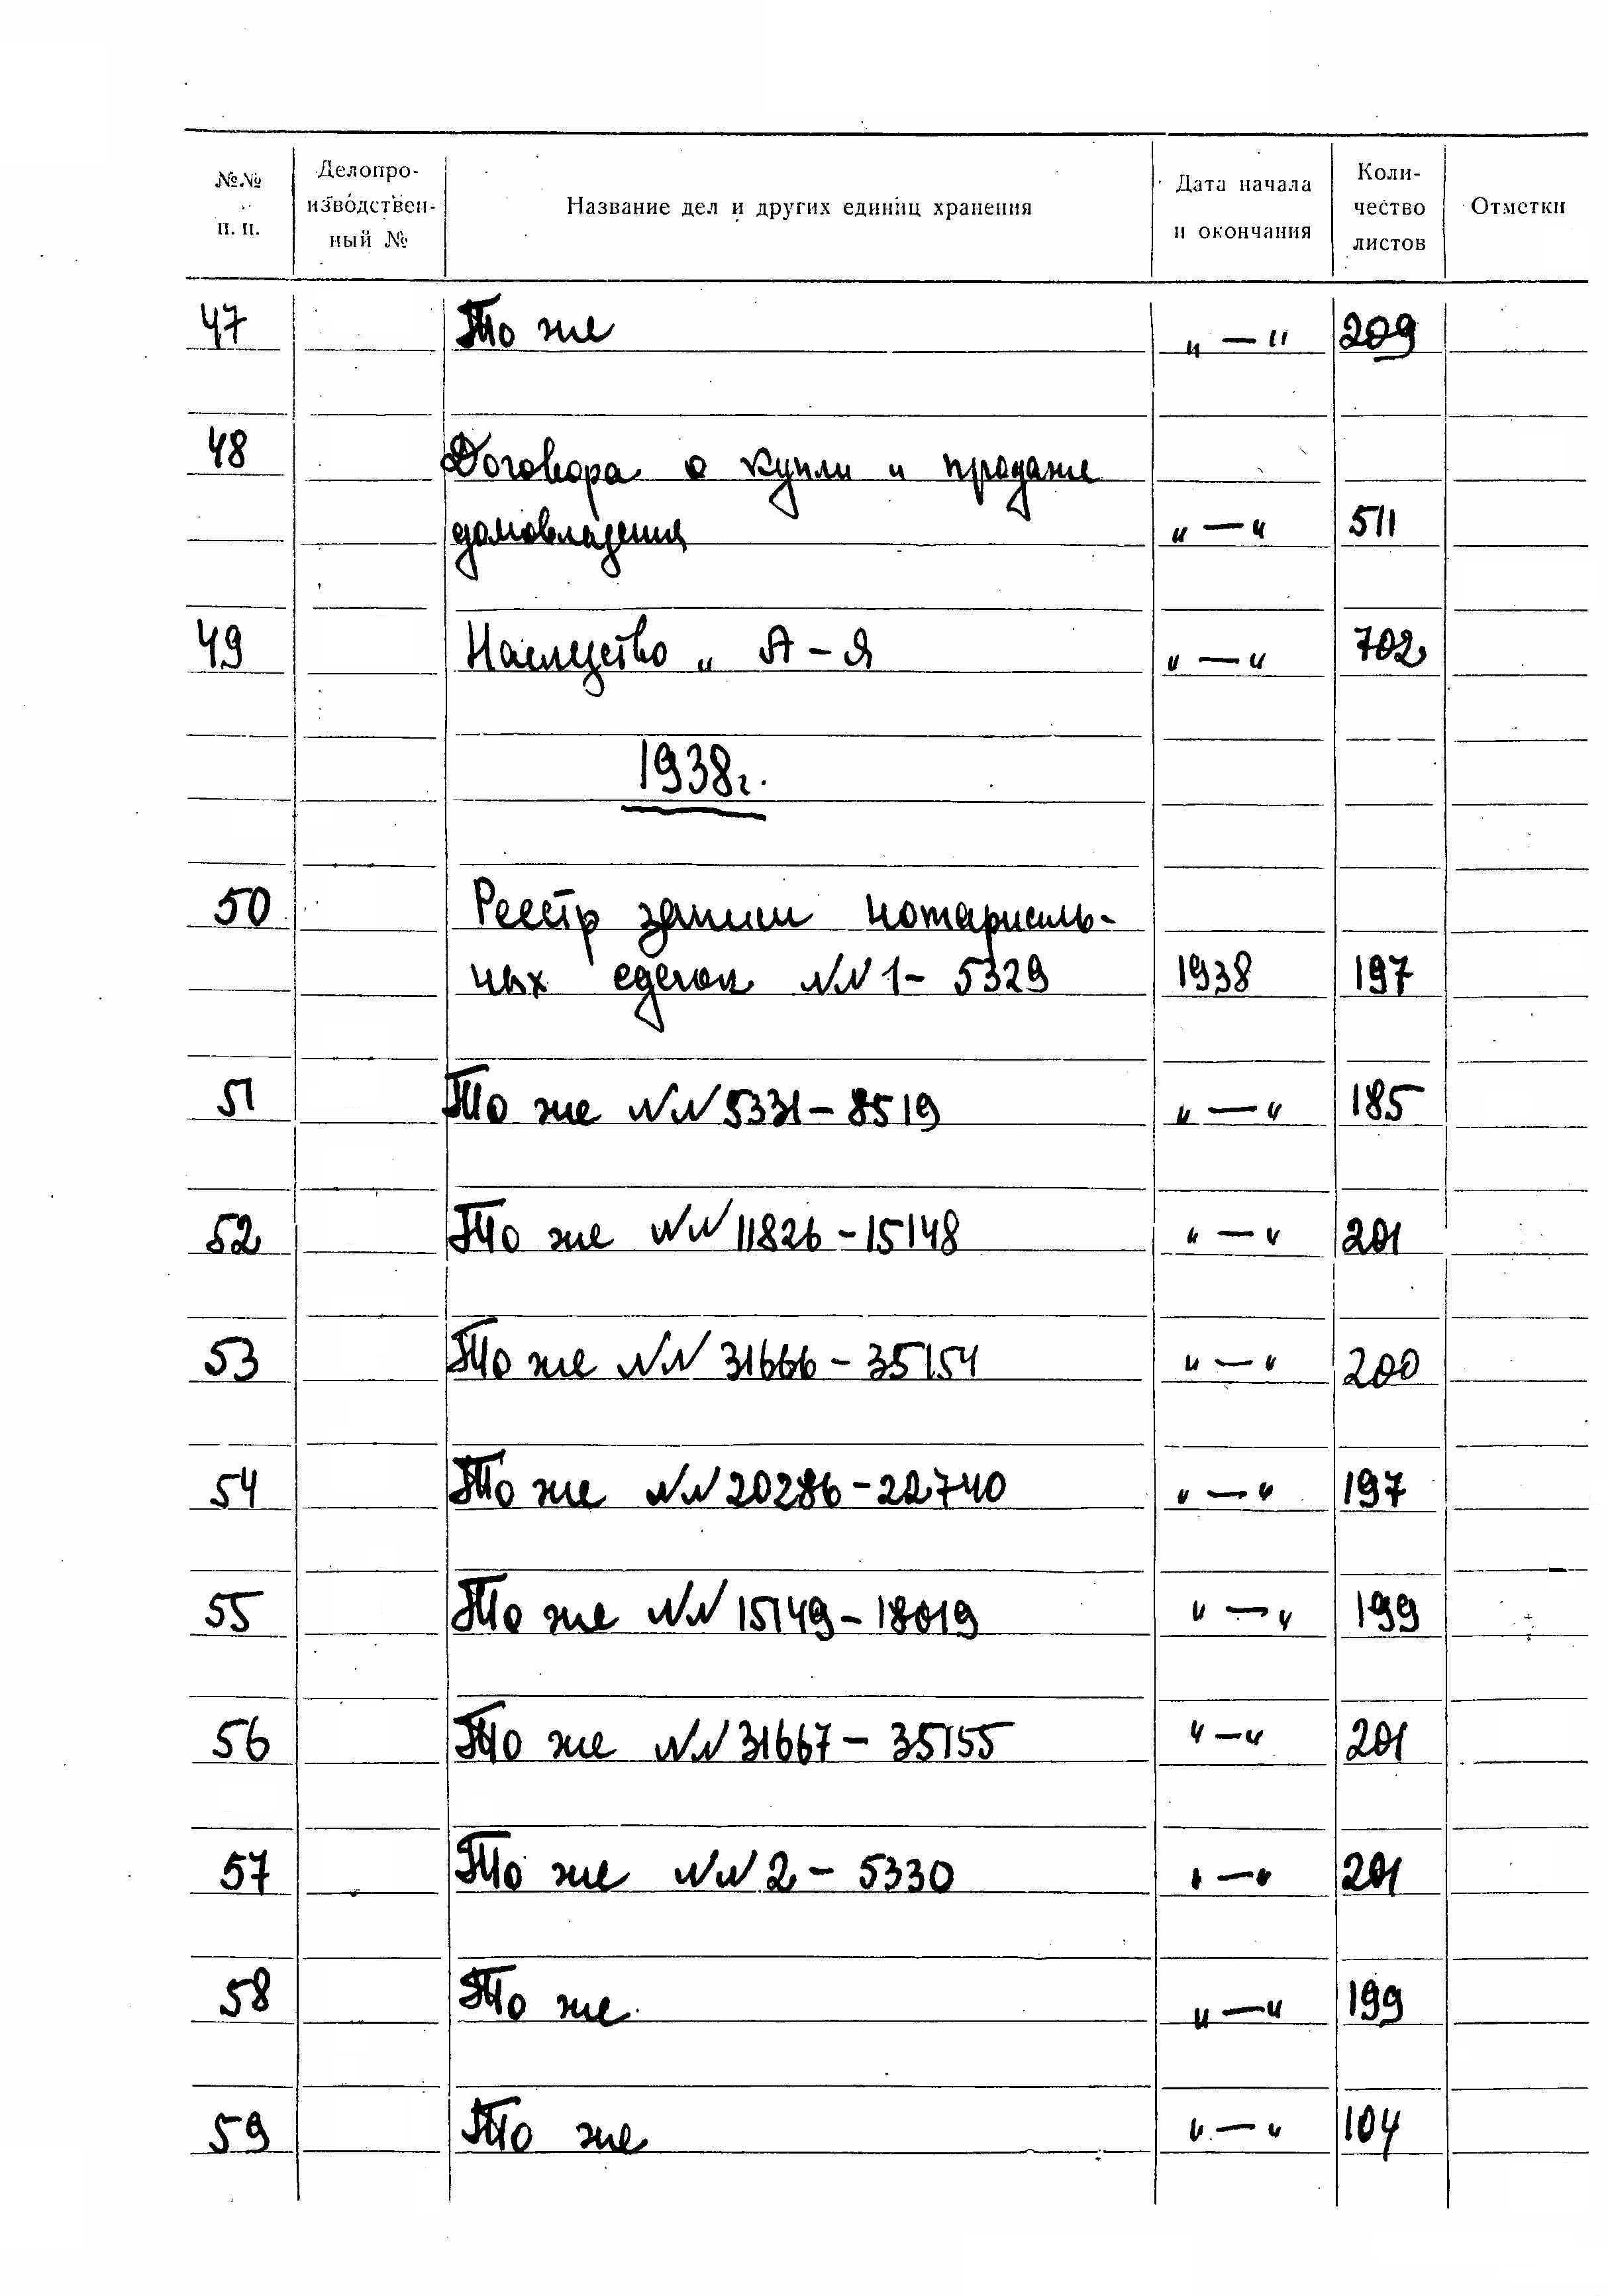 №№ п. п. Делопро-изводствен-ный № Название дел и других единиц хранения Дата начала и окончания Коли-чество листов Отметки
47 То же „ — " 209
48 Договора о купли и продаже
домовладения „ — " 511
49 Наследство „ А - Я „ — " 702
1938г.
50 Реестр записи нотариаль-
ных сделок NN 1 - 5329 1938 197
51 То же NN 5331 - 8519 „ — " 185
52 То же NN 11826 - 15148 „ — " 201
53 То же NN 31666 - 35154 „ — " 200
54 То же NN 20286 - 22740 „ — " 197
55 То же NN 15149 - 18019 „ — " 199
56 То же NN 31667 - 35155 „ — " 201
57 То же NN 2 - 5330 „ — " 201
58 То же „ — " 199
59 То же „ — " 104